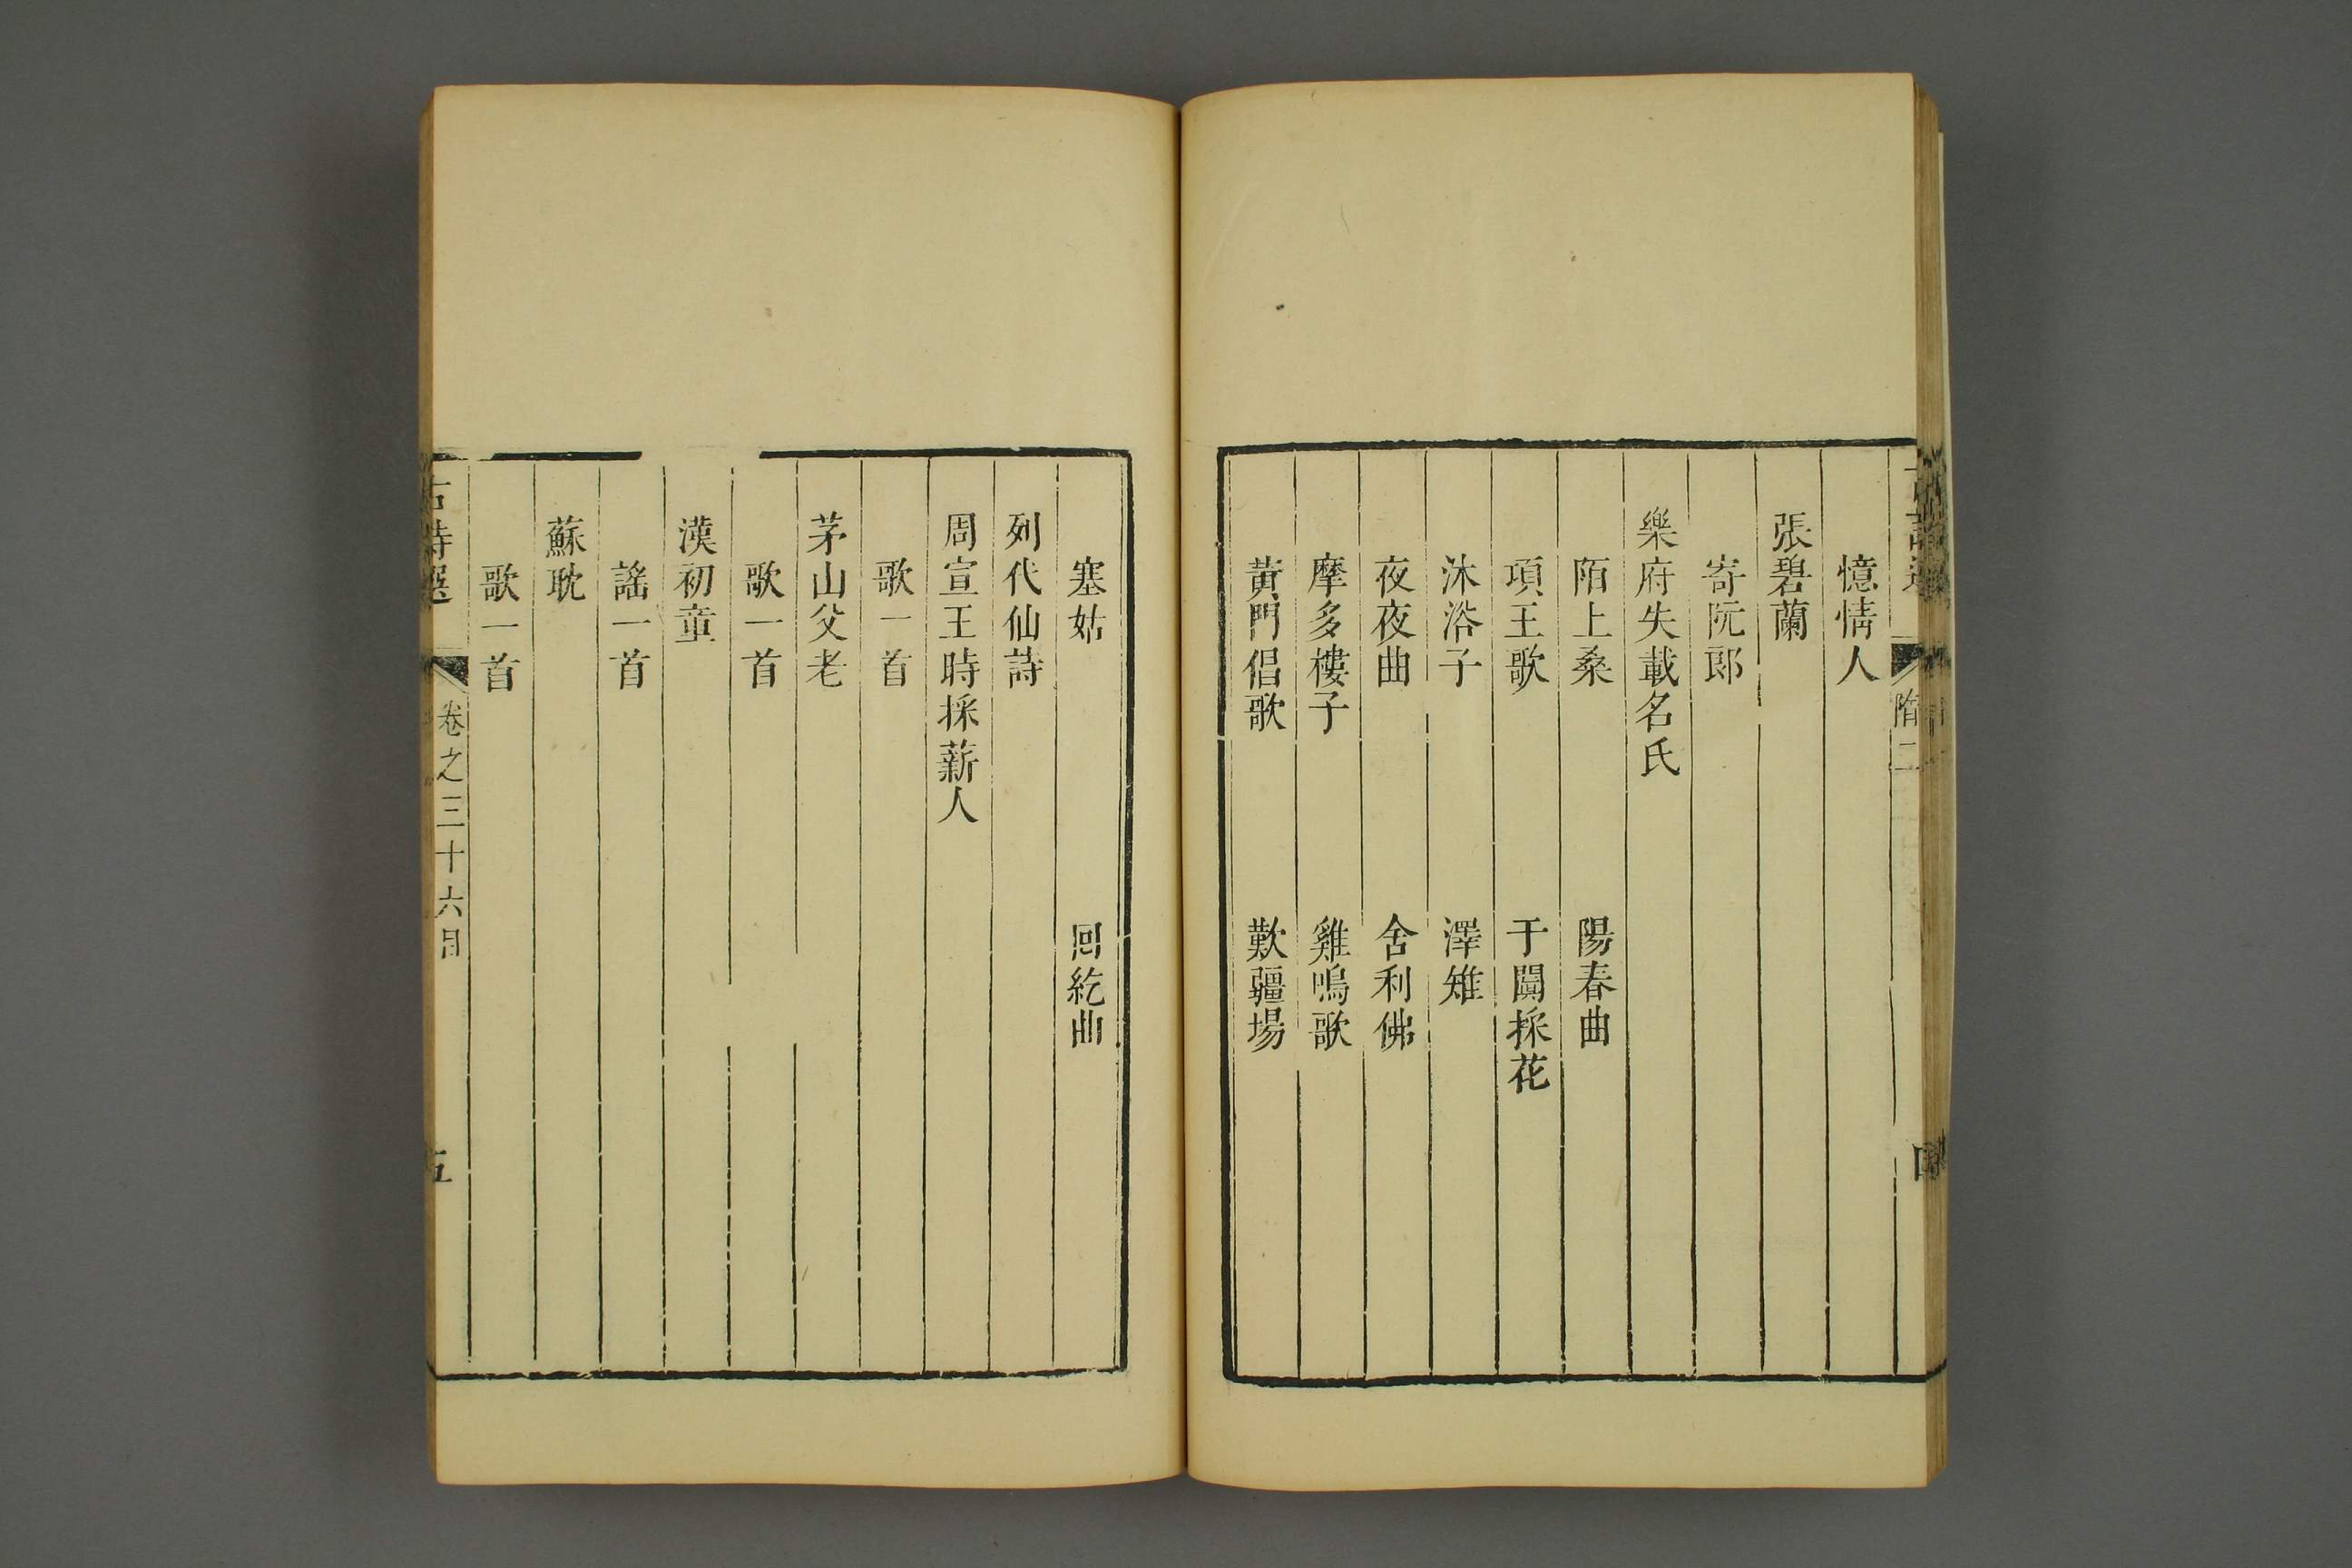 憶情人
張碧蘭
寄阮郎
樂府失載名氏
陌上桑 陽春曲
項王歌 于闐採花
沐浴子 澤雉
夜夜曲 舍利佛
摩多樓子 雞鳴歌
黃門倡歌 歎疆場
塞姑 回紇曲
列代仙詩
周宣王時採薪人
歌一首
茅山父老
歌一首
漢初童
謠一首
蘇耽
歌一首
古詩選 卷之三十六目 五